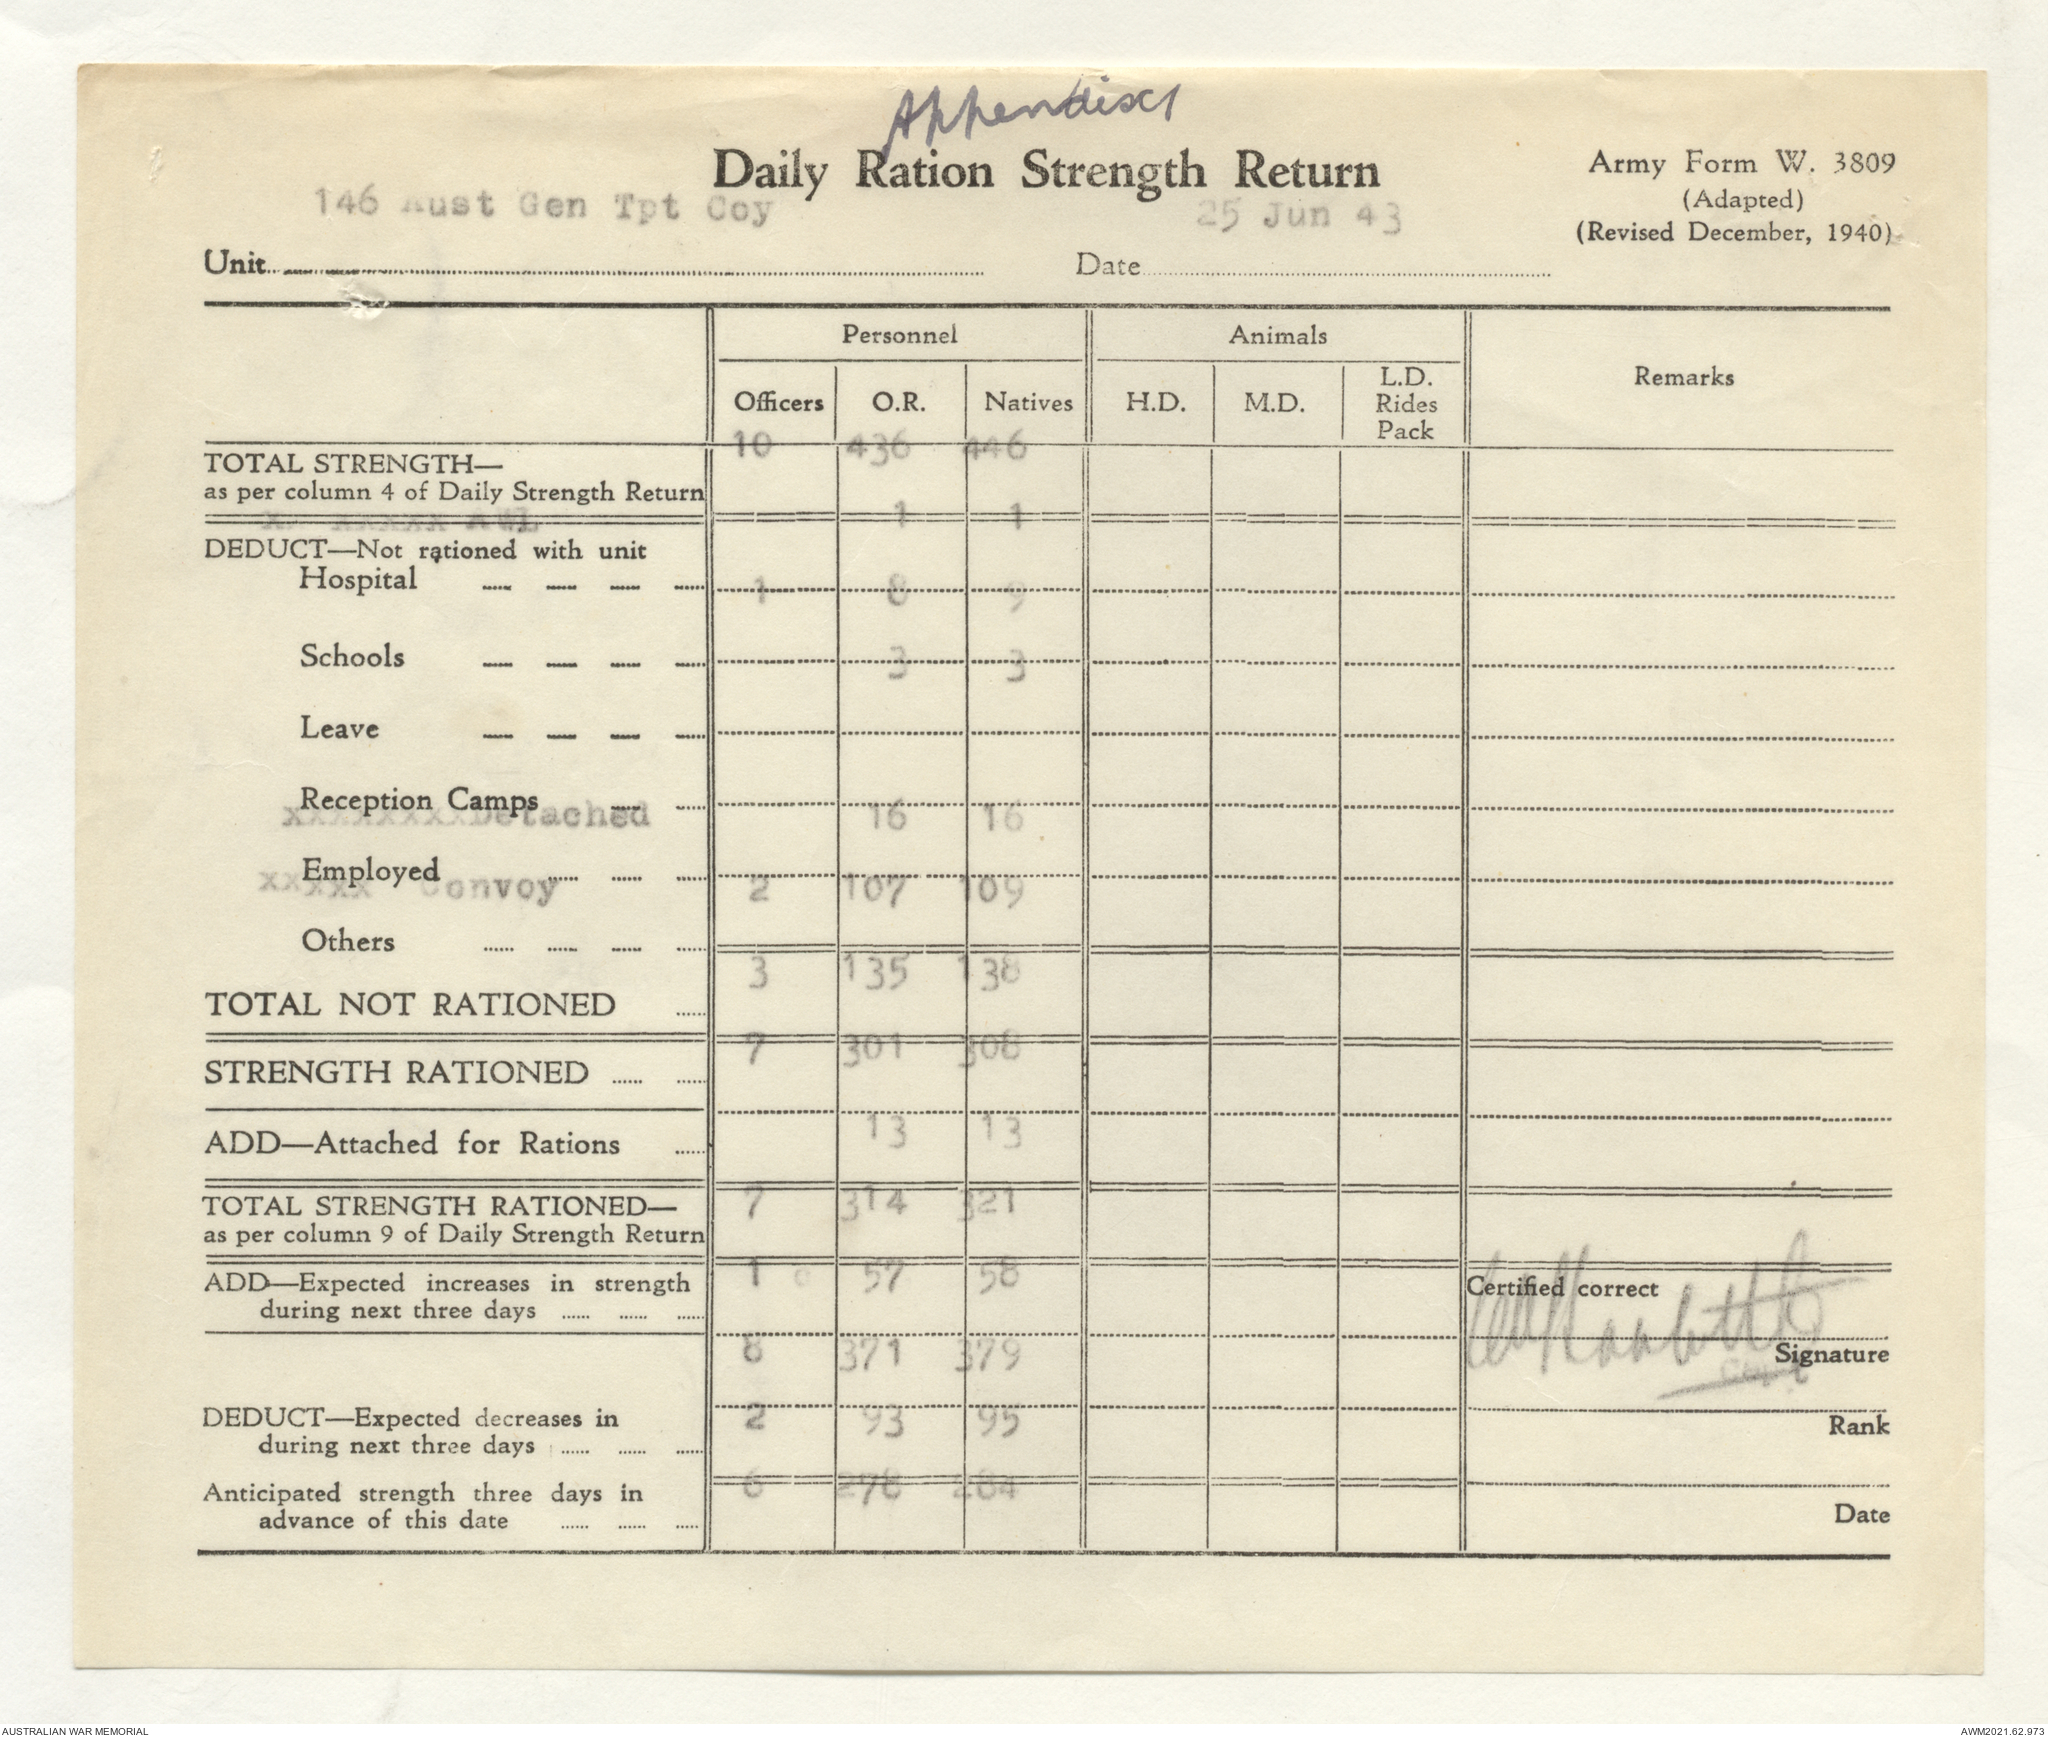 Appendix 1
Daily Ration Strength Return
Army Form W. 3809
(Adapted)
(Revised December, 1940)
146 Aust Gen Tpt Coy 25 Jun 43
Unit Date
Personnel Animals Remarks
Officers O.R. Natives H.D. M.D. L.D. Rides Pack
10 436 446
TOTAL STRENGTH—
as per column 4 of Daily Strength Return
xx xxxxx AWL 1 1
DEDUCT—Not rationed with unit
Hospital 1 8 9
Schools 3 3
Leave
Reception Camps
xxxxxxxxDetached 16 16
Employed
xxxxx Convoy 2 107 109
Others
3 135 138
TOTAL NOT RATIONED
7 301 308
STRENGTH RATIONED
ADD—Attached for Rations 13 13
TOTAL STRENGTH RATIONED— 7 314 321
as per column 9 of Daily Strength Return
ADD—Expected increases in strength 1 57 58 Certified correct
during next three days
8 371 379 Signature
Capt
DEDUCT—Expected decreases in 2 93 95 Rank
during next three days
Anticipated strength three days in 6 278 284
advance of this date Date
AUSTRALIAN WAR MEMORIAL AWM2021.62.973